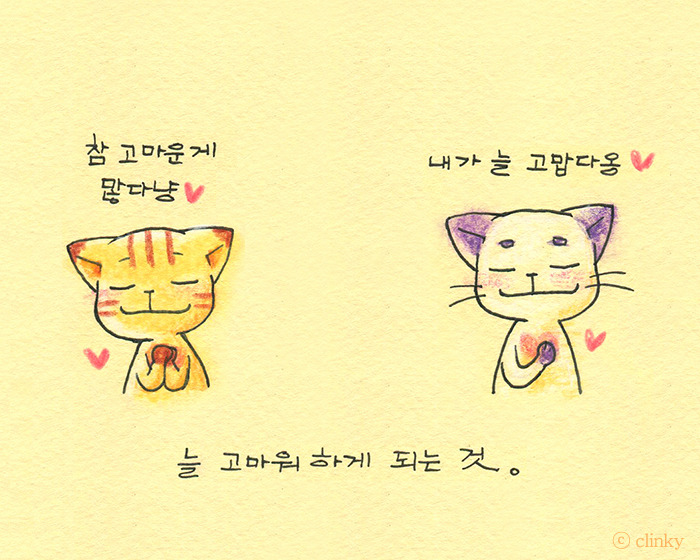 참 고마운게
많다냥
내가 늘 고맙다옹
늘 고마워 하게 되는 것。
ⓒ clinky